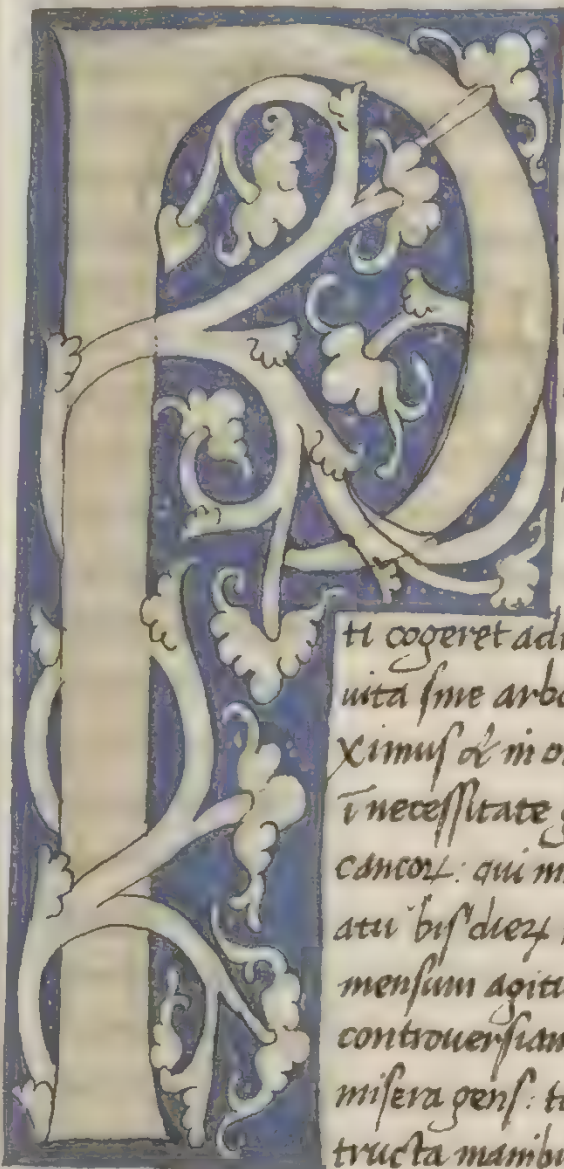 P
ti cogeret adi
uita sine arbo
ximus & in o
ī necessitate g
cancoꝝ: qui m
atu bis dieꝝ
mensum agitu
controuersiam
misera gens: t
tructa manibu